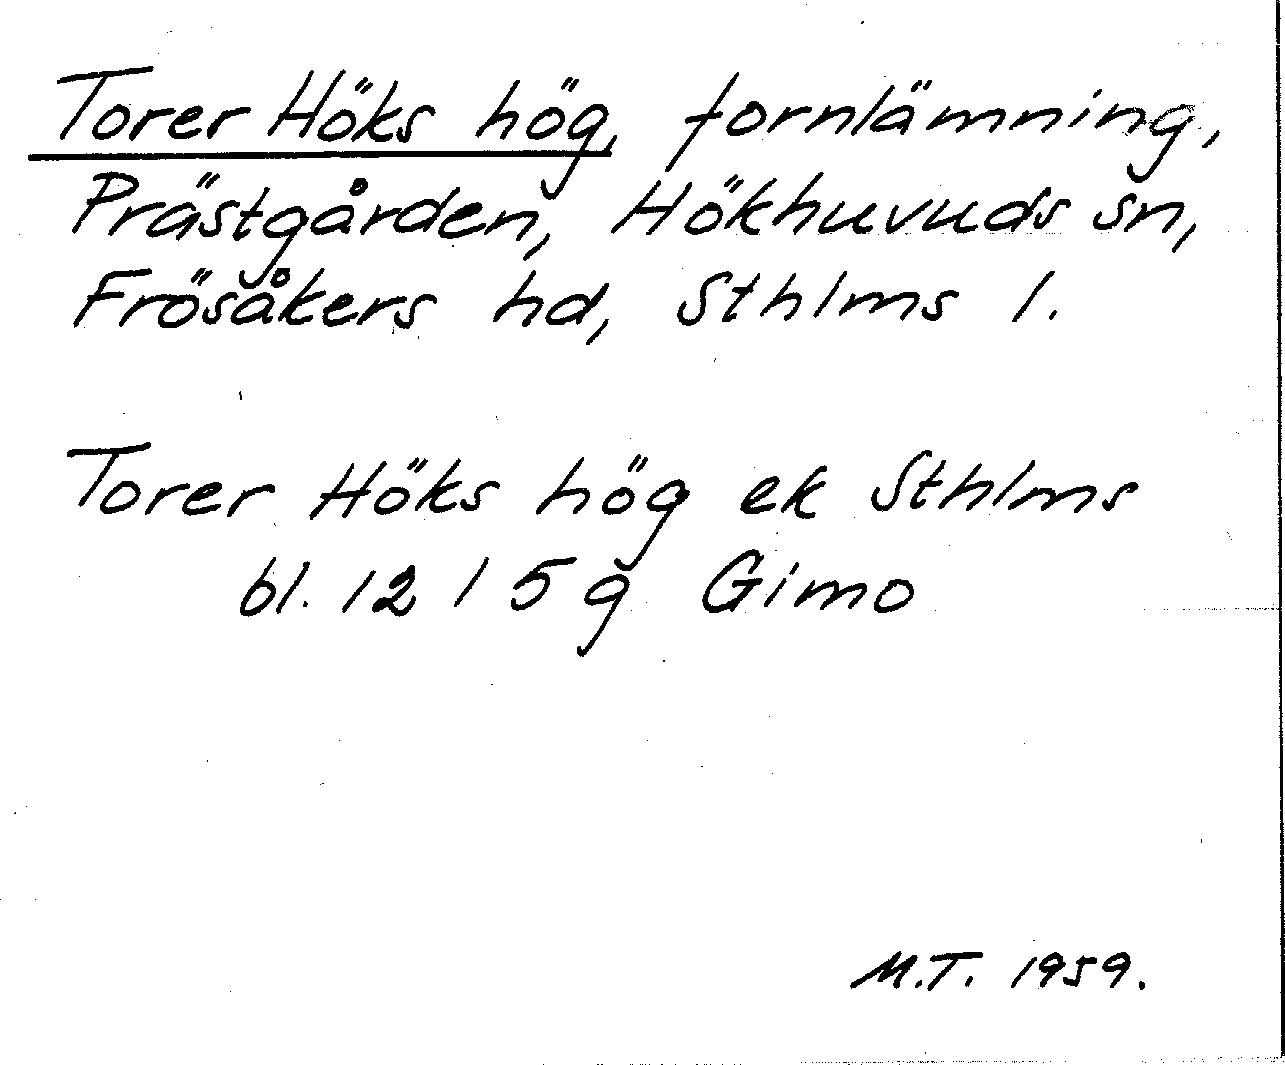 Torer Höks hög, fornlämning,
Prästgården, Hökhuvuds sn,
Frösåkers hd, Sthlms l.
Torer Höks hög ek Sthlms
bl. 12 I 5 g Gimo
M.T. 1959.